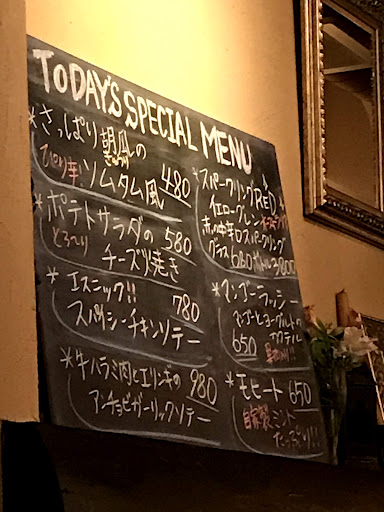 TODAY'S SPECIAL MENU
*さっぱり胡瓜の
きゅうり
ピリ辛ソムタム風 480
*ポテトサラダの 580
とろ〜り チーズ焼き
*エスニック!! 780
スパイシーチキンソテー
*牛ハラミ肉とエリンギの 980
アンチョビガーリックソテー
*スパークリングRED
イエローグレン
赤の中辛口スパークリング
グラス680 ボトル3800
*マンゴーラッシー
マンゴーとヨーグルトの
カクテル
650
*モヒート 650
自家製ミント
たっぷり!!